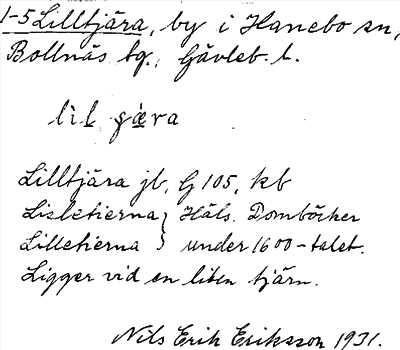 1-5 Lilltjära, by i Hanebo sn,
Bollnäs tg., Gävleb. l.
Lilltjära jb, G 105, kb
Lisletierna } Häls. Domböcker
Lilletierna } under 1600-talet.
Ligger vid en liten tjärn.
Nils Erik Eriksson 1931.